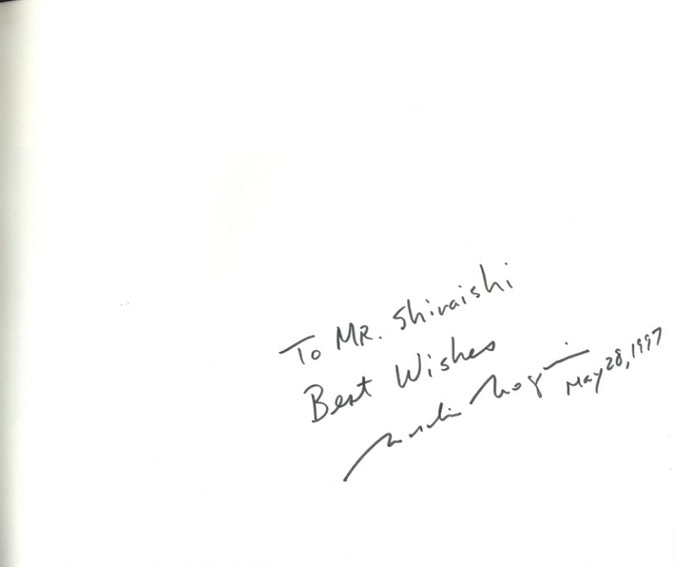 To MR. Shiraishi
Best Wishes
May 28, 1997